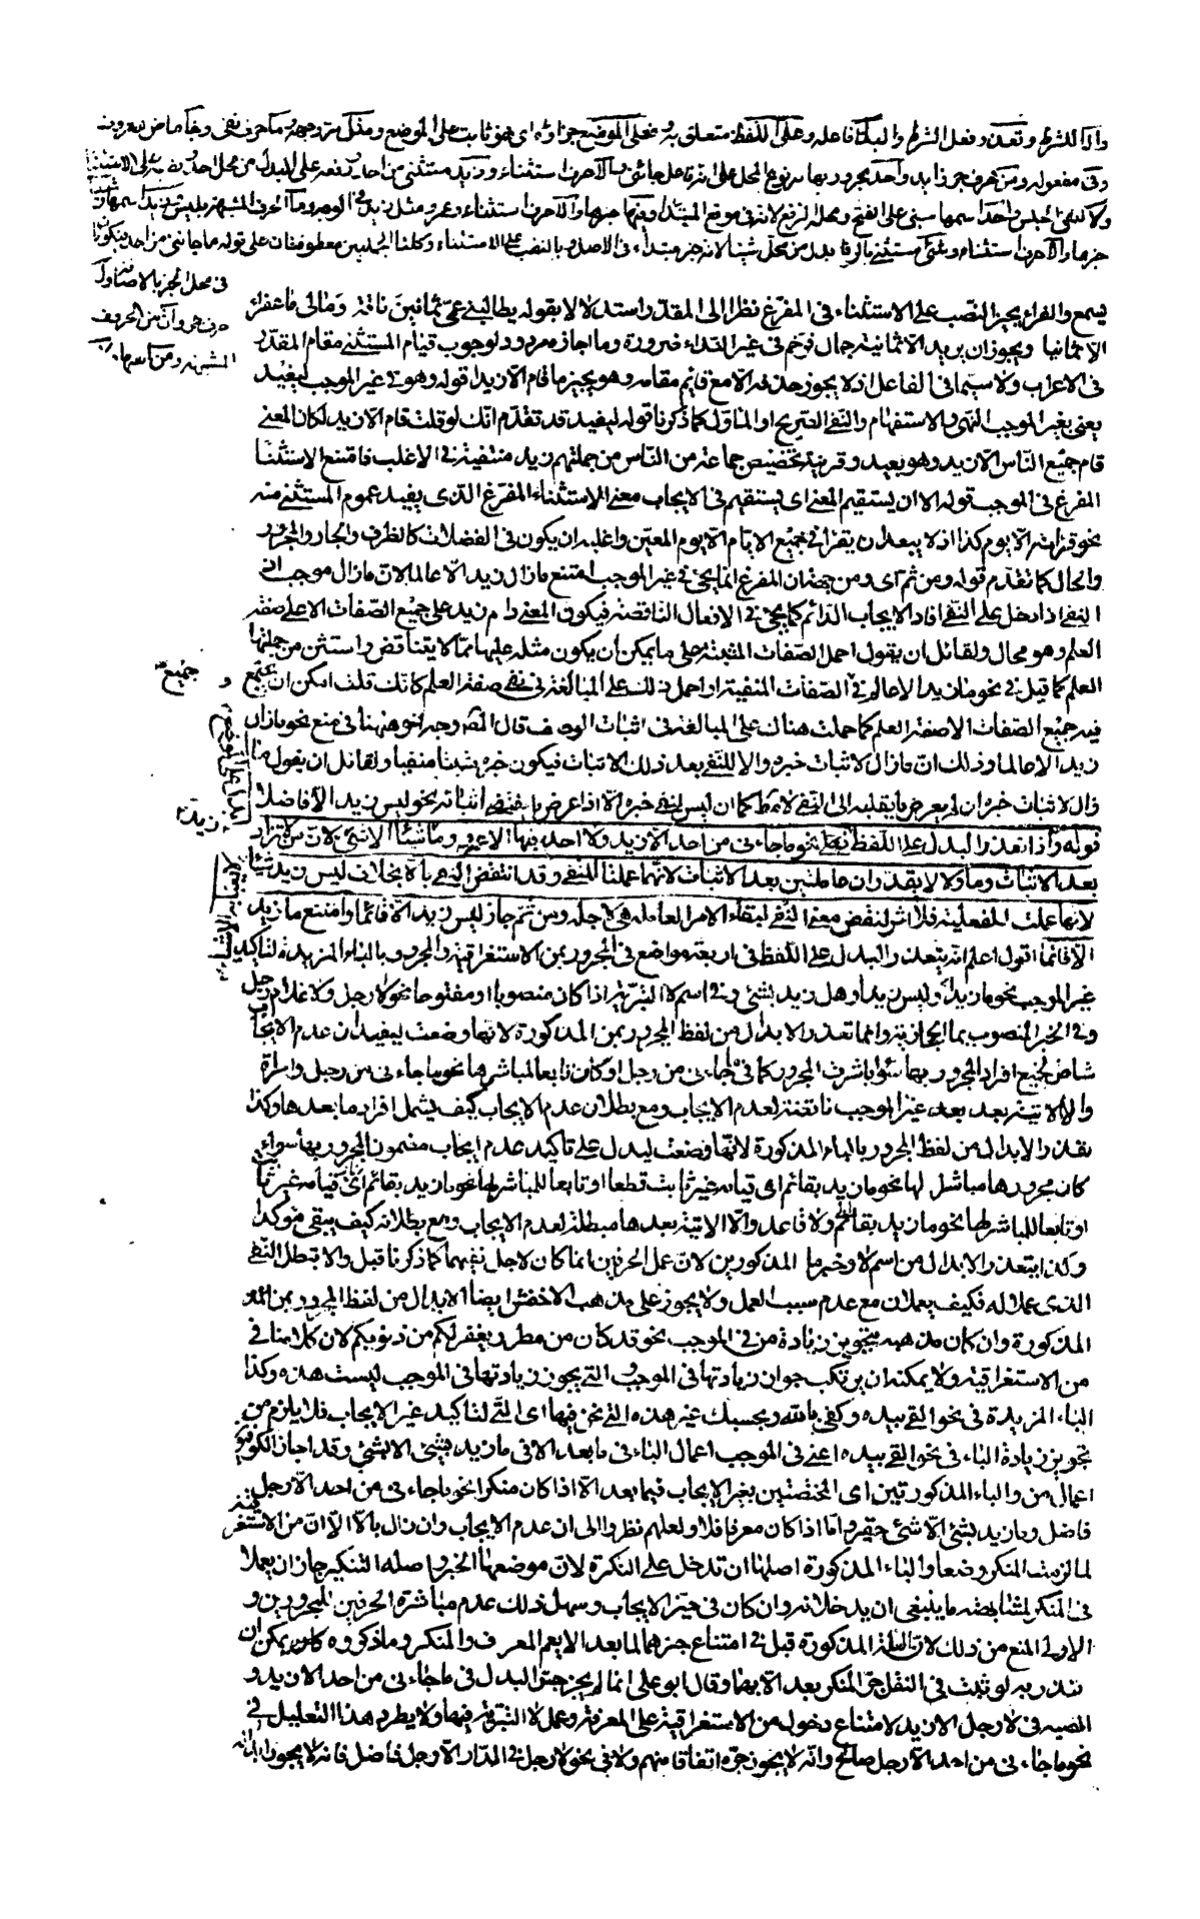 واذا للشرط وتعذر فعل الشرط والبدل فاعله وعلى اللفظ متعلق به فعلى الموضع جزاؤه اى فهو ثابت على الموضع ومثل وما حرف نفى وجاء ماض
وفى مفعوله ومن حرف جر زايد واحد مجرور بها مرفوع المحل على انه فاعل جائنى والا حرف استثناء وزيد مستثنى من احد رفعه على البدل من محل احد
ولا لنفى الجنس واحد اسمها مبنى على الفتح ومحله الرفع لانه فى موقع المبتدا وفيها خبرها والا حرف استثناء وعمرو مثل زيد
خبرها والا حرف استثناء وشئ مستثنى بدل من محل شيئا لانه خبر مبتداء فى الاصل بالنصب على الاستثناء وكلتا الجملتين معطوفتان على قوله ما جائنى من احد
فى محل الجر بالاضافة
حرف جر وان من الحروف
المشبهة ومن اسمها
يسمع والفراء يجيز النصب على الاستثناء فى المفرغ نظرا الى المقدر واستدلالا بقوله يطالبنى عمى ثمانين ناقة ومالى ما عفراء
الا ثمانيا ويجوز ان يريد الا ثمانية جمال فرخم فى غير النداء ضرورة وما اجازه مردود لوجوب قيام المستثنى مقام المقدر
فى الاعراب ولا سيما فى الفاعل اذ لا يجوز حذفه الا مع قائم مقامه وهو يجيز ما قام الا زيدا قوله وهو فى غير الموجب ليفيد
يعنى بغير الموجب النهى والاستفهام والنفى الصريح او المأول كما ذكرنا قوله ليفيد قد تقدم انك لو قلت قام الا زيد لكان المعنى
قام جميع الناس الا زيد وهو بعيد وقرينة تخصيص جماعة من الناس من جملتهم زيد منتفية فى الاغلب فامتنع الاستثناء
المفرغ فى الموجب قوله الا ان يستقيم المعنى اى يستقيم فى الايجاب معنى الاستثناء المفرغ الذى يفيد عموم المستثنى منه
نحو قرات الا يوم كذا اذ لا يبعد ان يقرا فى جميع الايام الا اليوم المعين واغلبه ان يكون فى الفضلات كالظرف والجار والمجرور
والحال كما تقدم قوله ومن ثم اى ومن جهة ان المفرغ انما يجئ فى غير الموجب امتنع مازال زيد الا عالما لان مازال موجب اذ
النفى اذا دخل على النفى افاد الايجاب الدائم كما يجئ فى الافعال الناقصة فيكون المعنى دام زيد على جميع الصفات الا على صفة
العلم وهو محال ولقائل ان يقول احمل الصفات المثبتة على ما يمكن ان يكون مثله عليها مما لا يتناقض واستثن من جملتها
العلم كما قيل فى نحو ما زيد الا عالم فى الصفات المنفية او احمل ذلك على المبالغة فى نفى صفة العلم كانك قلت امكن ان يجتمع
فيه جميع الصفات الا صفة العلم كما حملت هناك على المبالغة فى اثبات الوصف قال المص وجه اخر هنا فى منع نحو مازال
زيد الا عالما وذلك ان مازال لاثبات خبره والا للنفى بعد ذلك الاثبات فيكون خبره مثبتا منفيا ولقائل ان يقول ما
زال لاثبات خبره ان لم يعرض ما يقلبه الى النفى لا مطلقا كما ان ليس لنفى خبره الا اذا عرض ما يقتضى اثباته نحو ليس زيد الا فاضلا
قوله واذا تعذر البدل على اللفظ فعلى نحو ما جاءنى من احد الا زيد ولا احد فيها الا عمرو وما شيئا الا شئ لان من لا تزاد
بعد الاثبات وما ولا لا يقدران عاملتين بعد الاثبات لانهما عملتا للنفى وقد انتقض النفى بالا بخلاف ليس زيد شيئا
لانها عملت للفعلية فلا اثر لنقض معنى النفى لبقاء الامر العاملة هى لاجله ومن ثم جاز ليس زيد الا قائما وامتنع ما زيد
الا قائما اقول اعلم انه يتعذر البدل على اللفظ فى اربعة مواضع فى المجرور بمن الاستغراقية والمجرور بالباء المزيدة لتاكيد
غير الموجب نحو ما زيد او ليس زيد او هل زيد بشئ وفى اسم لا التبرئة اذا كان منصوبا او مفتوحا نحو لا رجل ولا غلام رجل
وفى الخبر المنصوب بما الحجازية وانما تعذر الابدال من لفظ المجرور بمن المذكورة لانها وضعت ليفيد ان عدم الايجاب
شامل لجميع افراد المجرور بها سواء باشرت المجرور كما فى ما جاءنى من رجل او كان تابعا لمباشرها نحو ما جاءنى من رجل وامراة
والا الاتية بعد بعد غير الموجب ناقضة لعدم الايجاب ومع بطلان عدم الايجاب كيف يشمل افراد ما بعدها وكذا
تعذر الابدال من لفظ المجرور بالباء المذكورة لانها وضعت ليدل على تاكيد عدم ايجاب مضمون المجرور بها سواء
كان مجرورها مباشرا لها نحو ما زيد بقائم اى قيامه غير ثابت قطعا او تابعا للمباشر لها نحو ما زيد بقائم
او تابعا للمباشر لها نحو ما زيد بقائم ولا قاعد والا الاتية بعدها مبطلة لعدم الايجاب ومع بطلانه كيف يبقى مؤكدا
وكذا يتعذر الابدال من اسم لا وخبر ما المذكورين لان عمل الحرفين انما كان لاجل نفيهما كما ذكرنا قبل والا تبطل النفى
الذى عملا له فكيف يعملان مع عدم سبب العمل ولا يجوز على مذهب الاخفش ايضا الابدال من لفظ المجرور بمن
المذكورة وان كان مذهبه تجويز زيادة من فى الموجب نحو قد كان من مطر ويغفر لكم من ذنوبكم لان كلامنا فى
من الاستغراقية ولا يمكنه ان يرتكب جواز زيادتها فى الموجب التى يجوز زيادتها فى الموجب ليست هذه وكذا
الباء المزيدة فى نحو القى بيده وكفى بالله وبحسبك غير هذه التى نحن فيها اى التى لتاكيد غير الايجاب فلا يلزم من
تجويز زيادة الباء فى نحو القى بيده اعنى فى الموجب اعمال الباء فى ما بعد الا فى ما زيد بشئ الا بشئ وقد اجاز الكوفيون
اعمال من والباء المذكورتين اى المختصتين بغير الايجاب فيما بعد الا اذا كان منكرا نحو ما جاءنى من احد الا رجل
فاضل وما زيد بشئ الا شئ حقير واما اذا كان معرفا فلا ولعلهم نظروا الى ان عدم الايجاب وان زال بالا الا ان من الاستغراقية
لما لزمت المنكر وضعا والباء المذكورة اصلها ان تدخل على النكرة لان موضعها الخبر واصله التنكير جاز ان يعملا
فى المنكر لمشابهته ما ينبغى ان يدخلانه وان كان فى حيز الايجاب وسهل ذلك عدم مباشرة الحرفين للمجرورين و
الاولى المنع من ذلك لان العلة المذكورة قبل فى امتناع جرهما لما بعد الا يعم المعرف والمنكر وما ذكروه كان يمكن ان
يعتذر به لو ثبت فى النقل جر المنكر بعد الا بهما وقال ابو على انما لم يجز جر البدل فى ما جاءنى من احد الا زيد و
نصبه فى لا رجل الا زيد لامتناع دخول من الاستغراقية على المعرفة وعمل لا التبرئة فيها ولا يطرد هذا التعليل فى
نحو ما جاءنى من احد الا رجل صالح وانه لا يجوز جره اتفاقا منهم ولا فى نحو لا رجل فى الدار الا رجل فاضل فانه لا يجوز
جميع
زيد